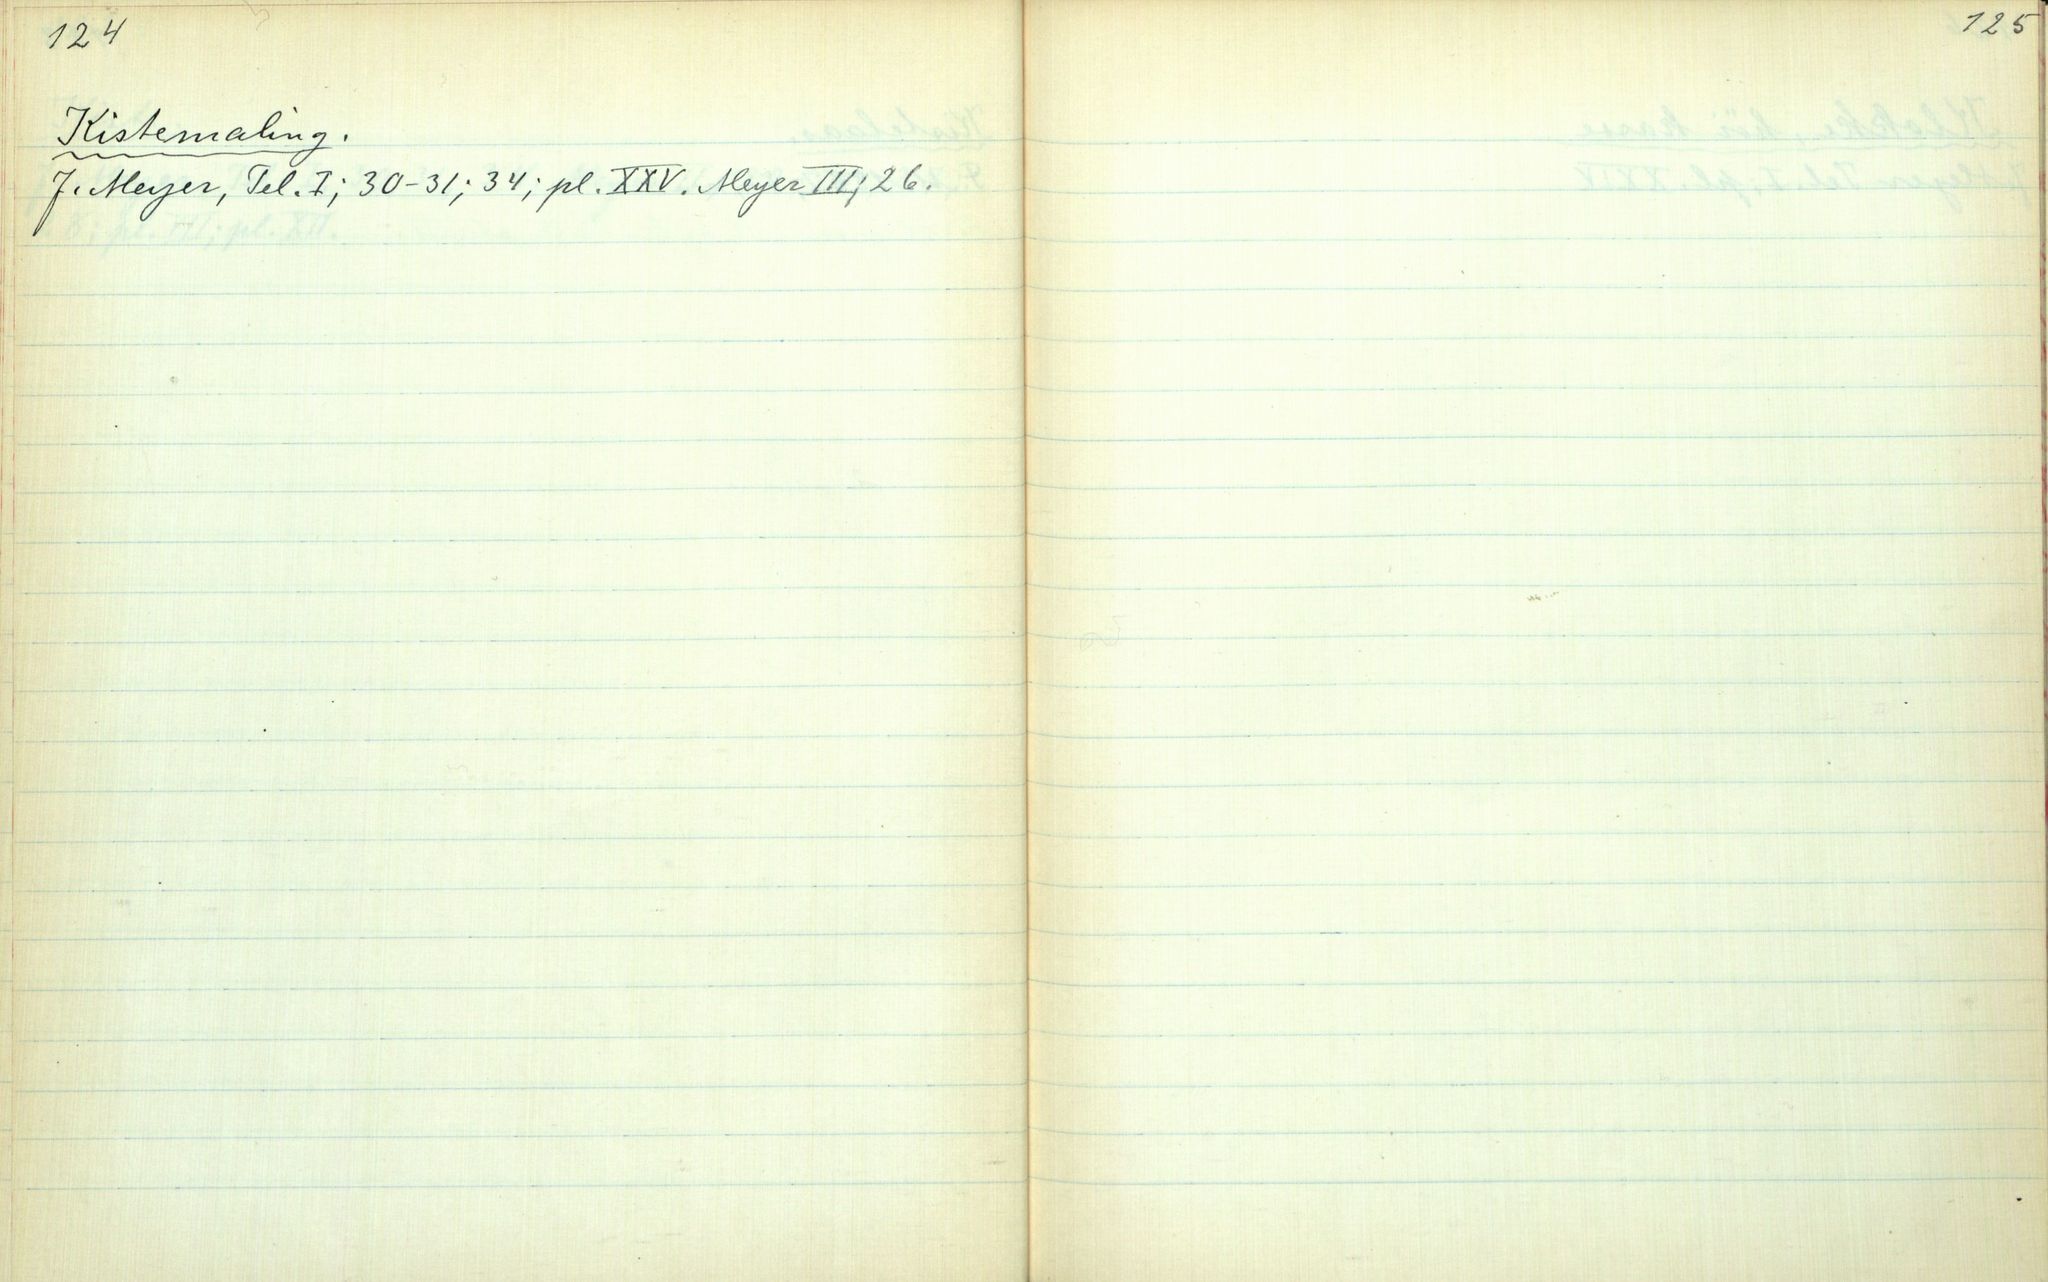 124
Kistemaling.
J. Meyer, Tel. I; 30-31; 34; pl. XXV. Meyer III; 26.
125